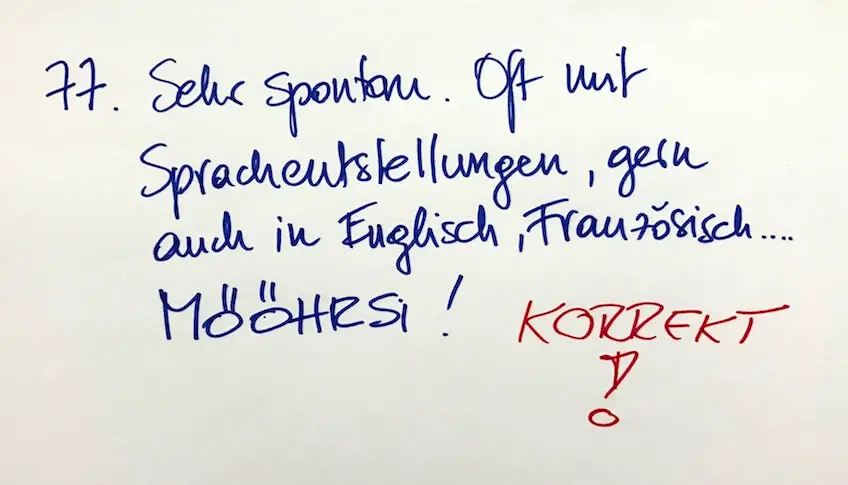 77. Sehr spontan. Oft mit
Sprachentstellungen, gern
auch in Englisch, Französisch....
MÖÖHRSi !
KORREKT
!